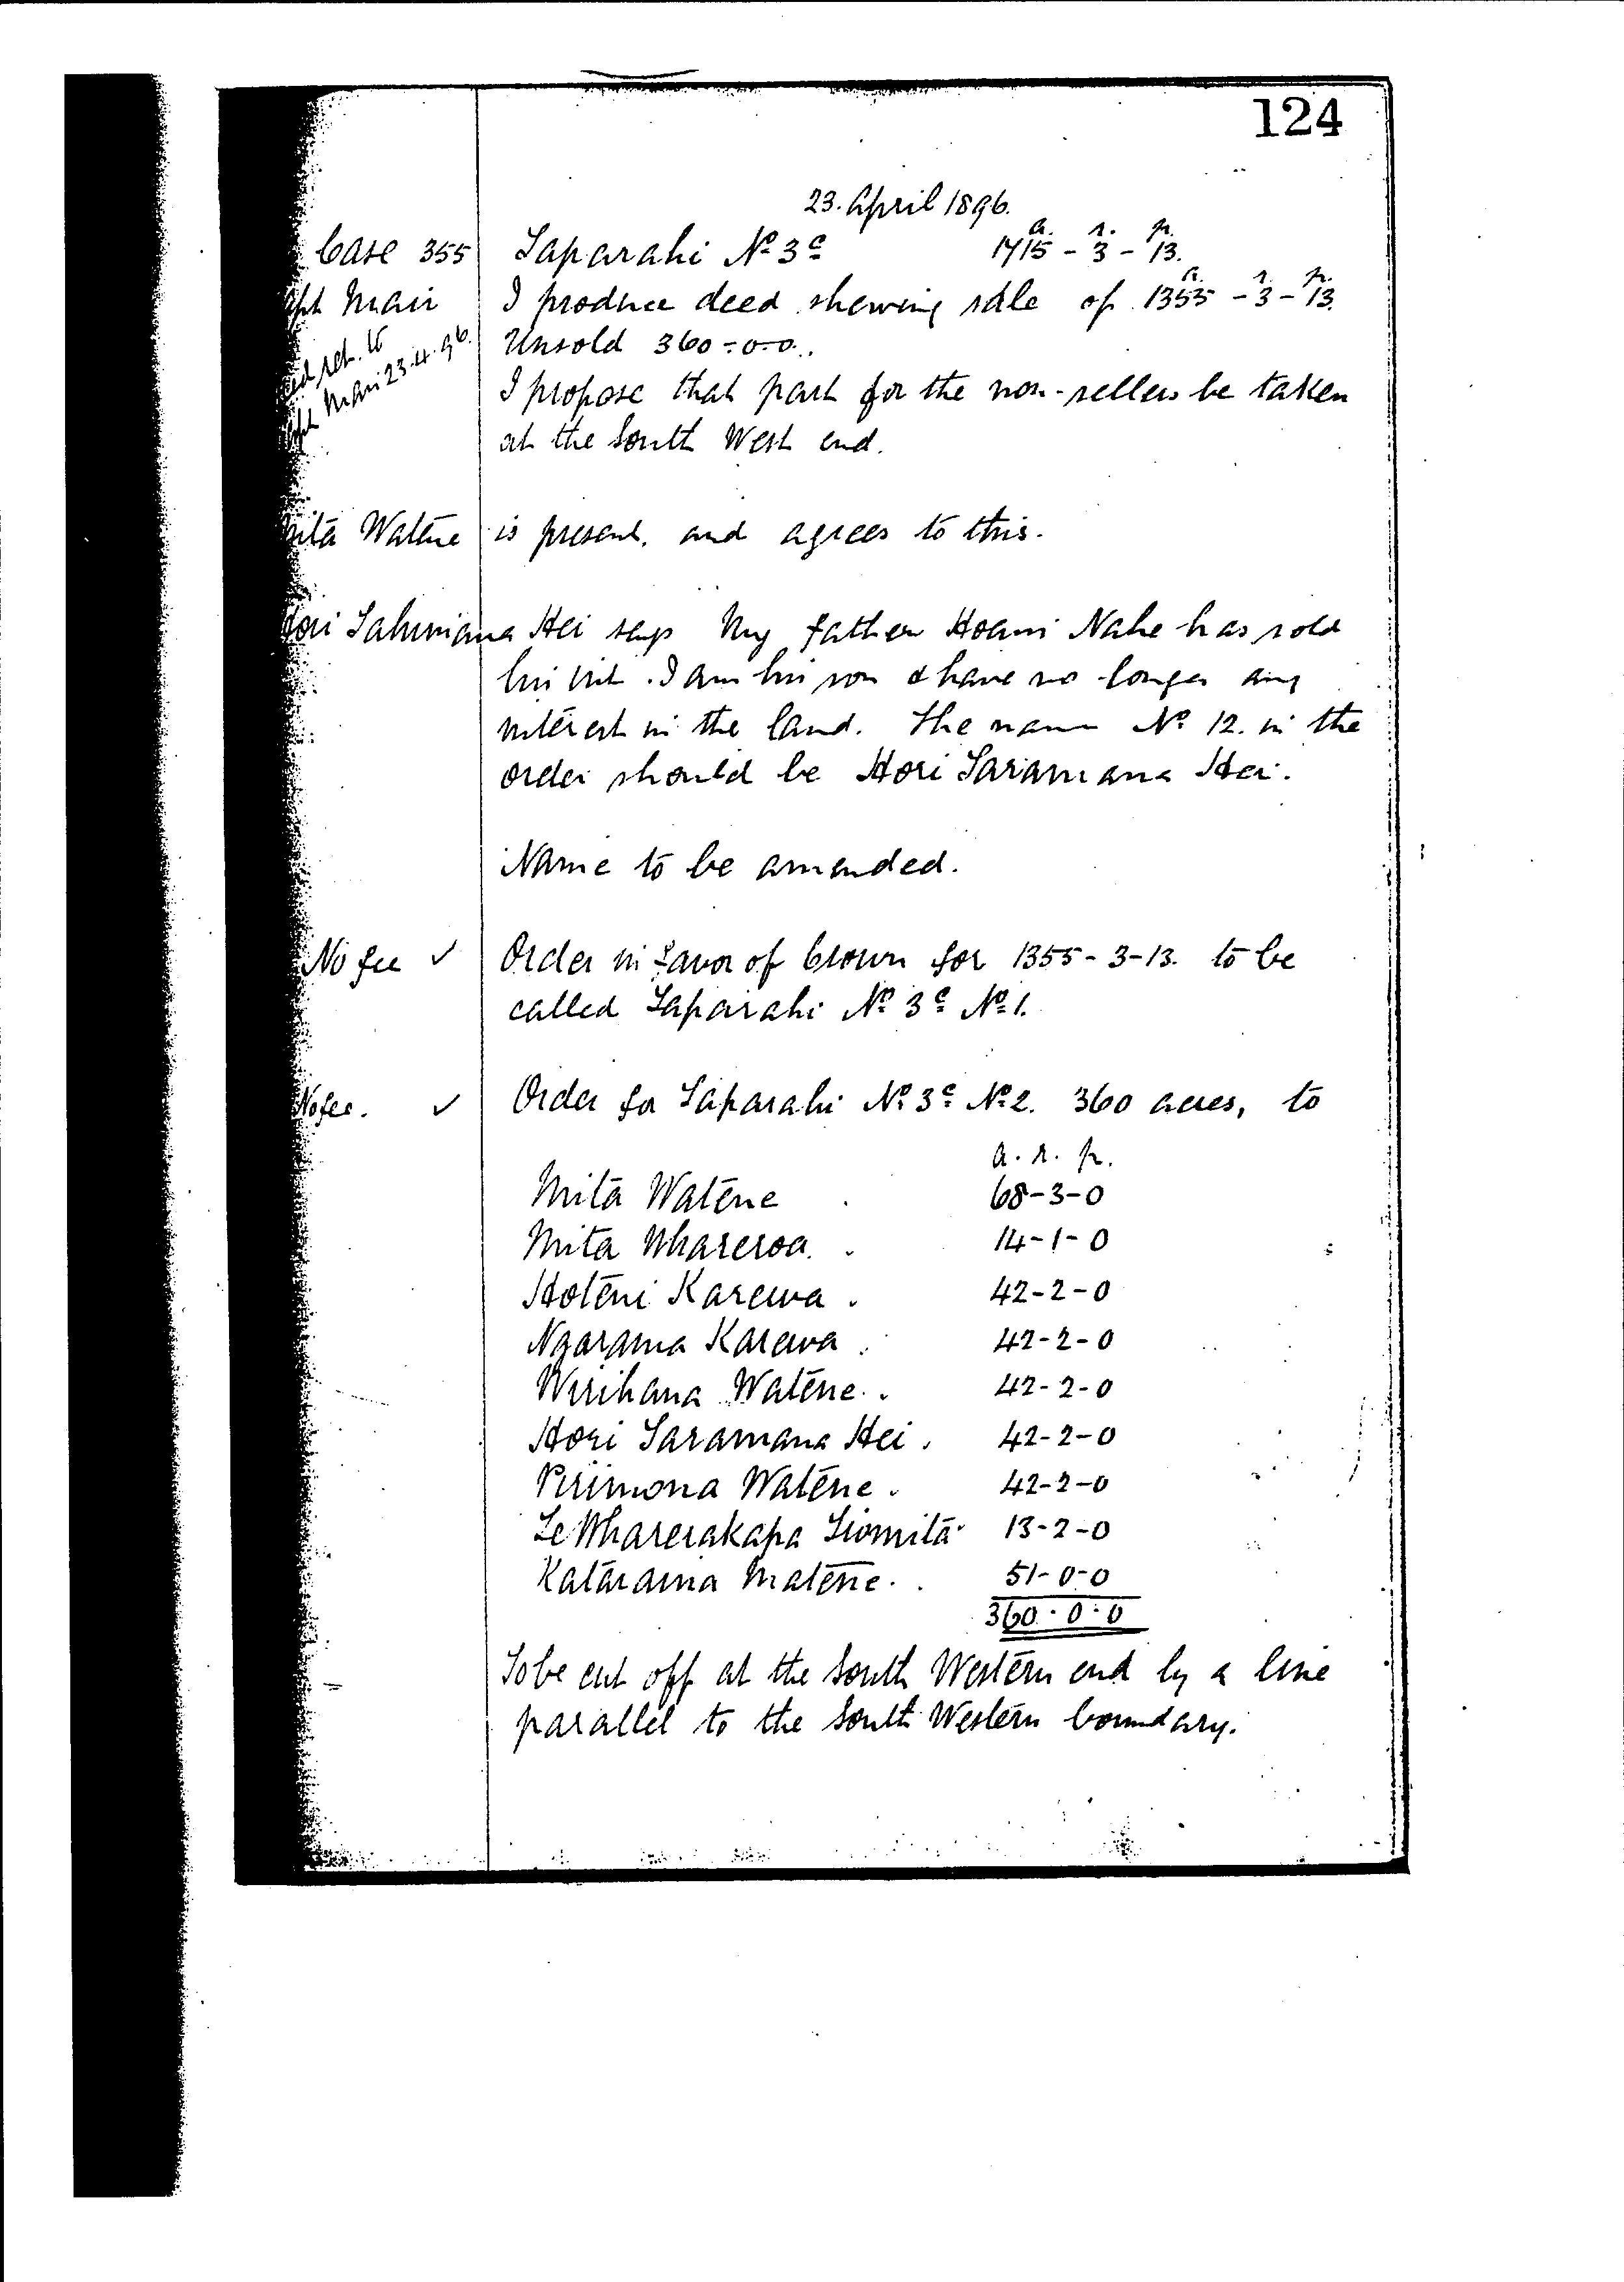 124
23. April 1896.
Case 355 Taparahi No 3c a. r. p. 1715 - 3 - 13.
Capt Mair I produce deed shewing sale of a. r. p. 1355 - 3 - 13.
Unsold 360-0-0.
Deed ret. to Capt Mair 23.4.96.
I propose that part for the non-sellers be taken
at the South West end.
Mita Watene is present, and agrees to this.
Hori Tahumana Hei says My father Hoani Nahe has sold
his int. I am his son & have no longer any
interest in the land. The name No 12. in the
order should be Hori Taramana Hei.
Name to be amended.
No fee ✓ Order in favor of Crown for 1355-3-13. to be
called Taparahi No 3c No 1.
No fee. ✓ Order for Taparahi No 3c No 2. 360 acres, to
a. r. p.
Mita Watene 68-3-0
Mita Whareroa. 14-1-0
Hoteni Karewa. 42-2-0
Ngarama Karewa. 42-2-0
Wirihana Watene. 42-2-0
Hori Taramana Hei. 42-2-0
Pirimona Watene. 42-2-0
Te Wharerakapa Tiomita 13-2-0
Katarama Matene. 51-0-0
360-0-0
To be cut off at the South Western end by a line
parallel to the South Western boundary.